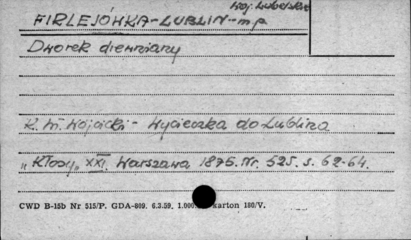 Woj. Lubelskie
FIRLEJÓWKA-LUBLIN-m.p
Dworek drewniany
K. W. Wójcicki - Wycieczka do Lublina
"Kłosy" XXI. Warszawa 1875. Nr. 525. s. 62-64.
CWD B-15b Nr 515/P. GDA-809. 6.3.59. 1.000. karton 180/V.